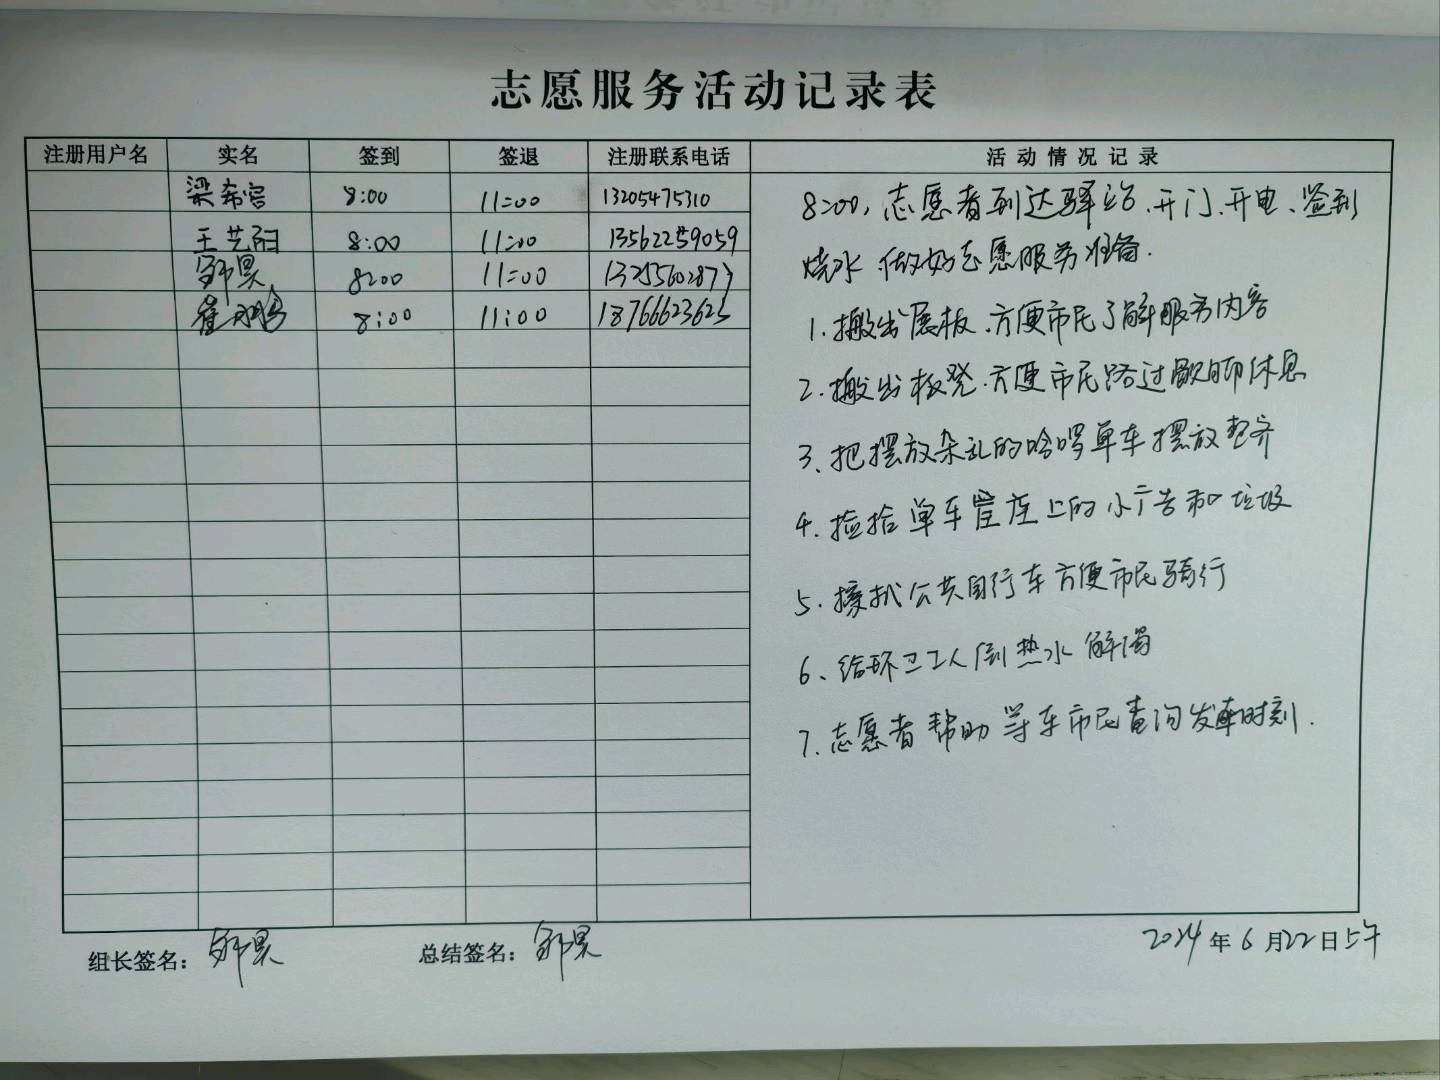 志愿服务活动记录表
注册用户名 实名 签到 签退 注册联系电话 活动情况记录
梁希容 8:00 11:00 13205475310
王艺阳 8:00 11:00 13562259059
邹昊 8:00 11:00 13255602877
崔 鹏 8:00 11:00 18766623625
8:00，志愿者到达驿站、开门、开电、签到
烧水、做好志愿服务准备.
1.搬出展板、方便市民了解服务内容
2.搬出板凳、方便市民路过歇脚休息
3、把摆放杂乱的哈啰单车摆放整齐
4.捡拾单车筐 上的小广告和垃圾
5.擦拭公共自行车方便市民骑行
6、给环卫工人倒热水解渴
7.志愿者帮助等车市民查询发车时刻.
组长签名：邹昊 总结签名：邹昊 2024年6月22日上午